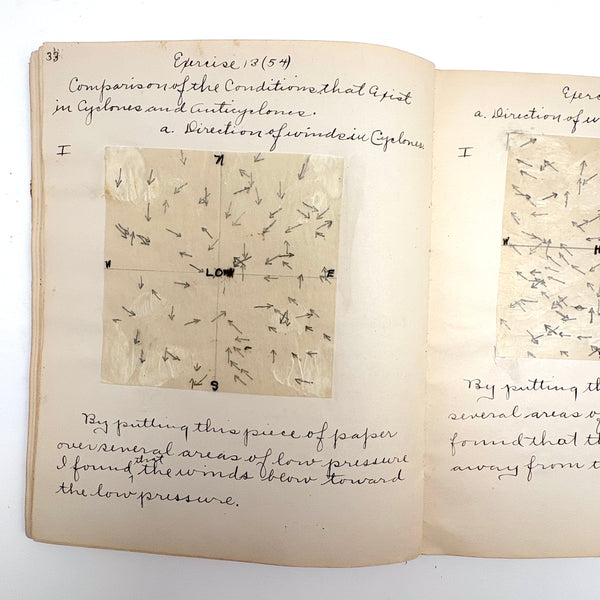 33
Exercise 13 (54)
Comparison of the Conditions that Exist
in Cyclones and Anticyclones.
a. Direction of winds in Cyclones
I
N
W
LOW
E
S
By putting this piece of paper
over several areas of low pressure
I found that the winds blow toward
the low pressure.
a. Direction of w
I
W
H
By putting th
several areas of
found that th
away from t